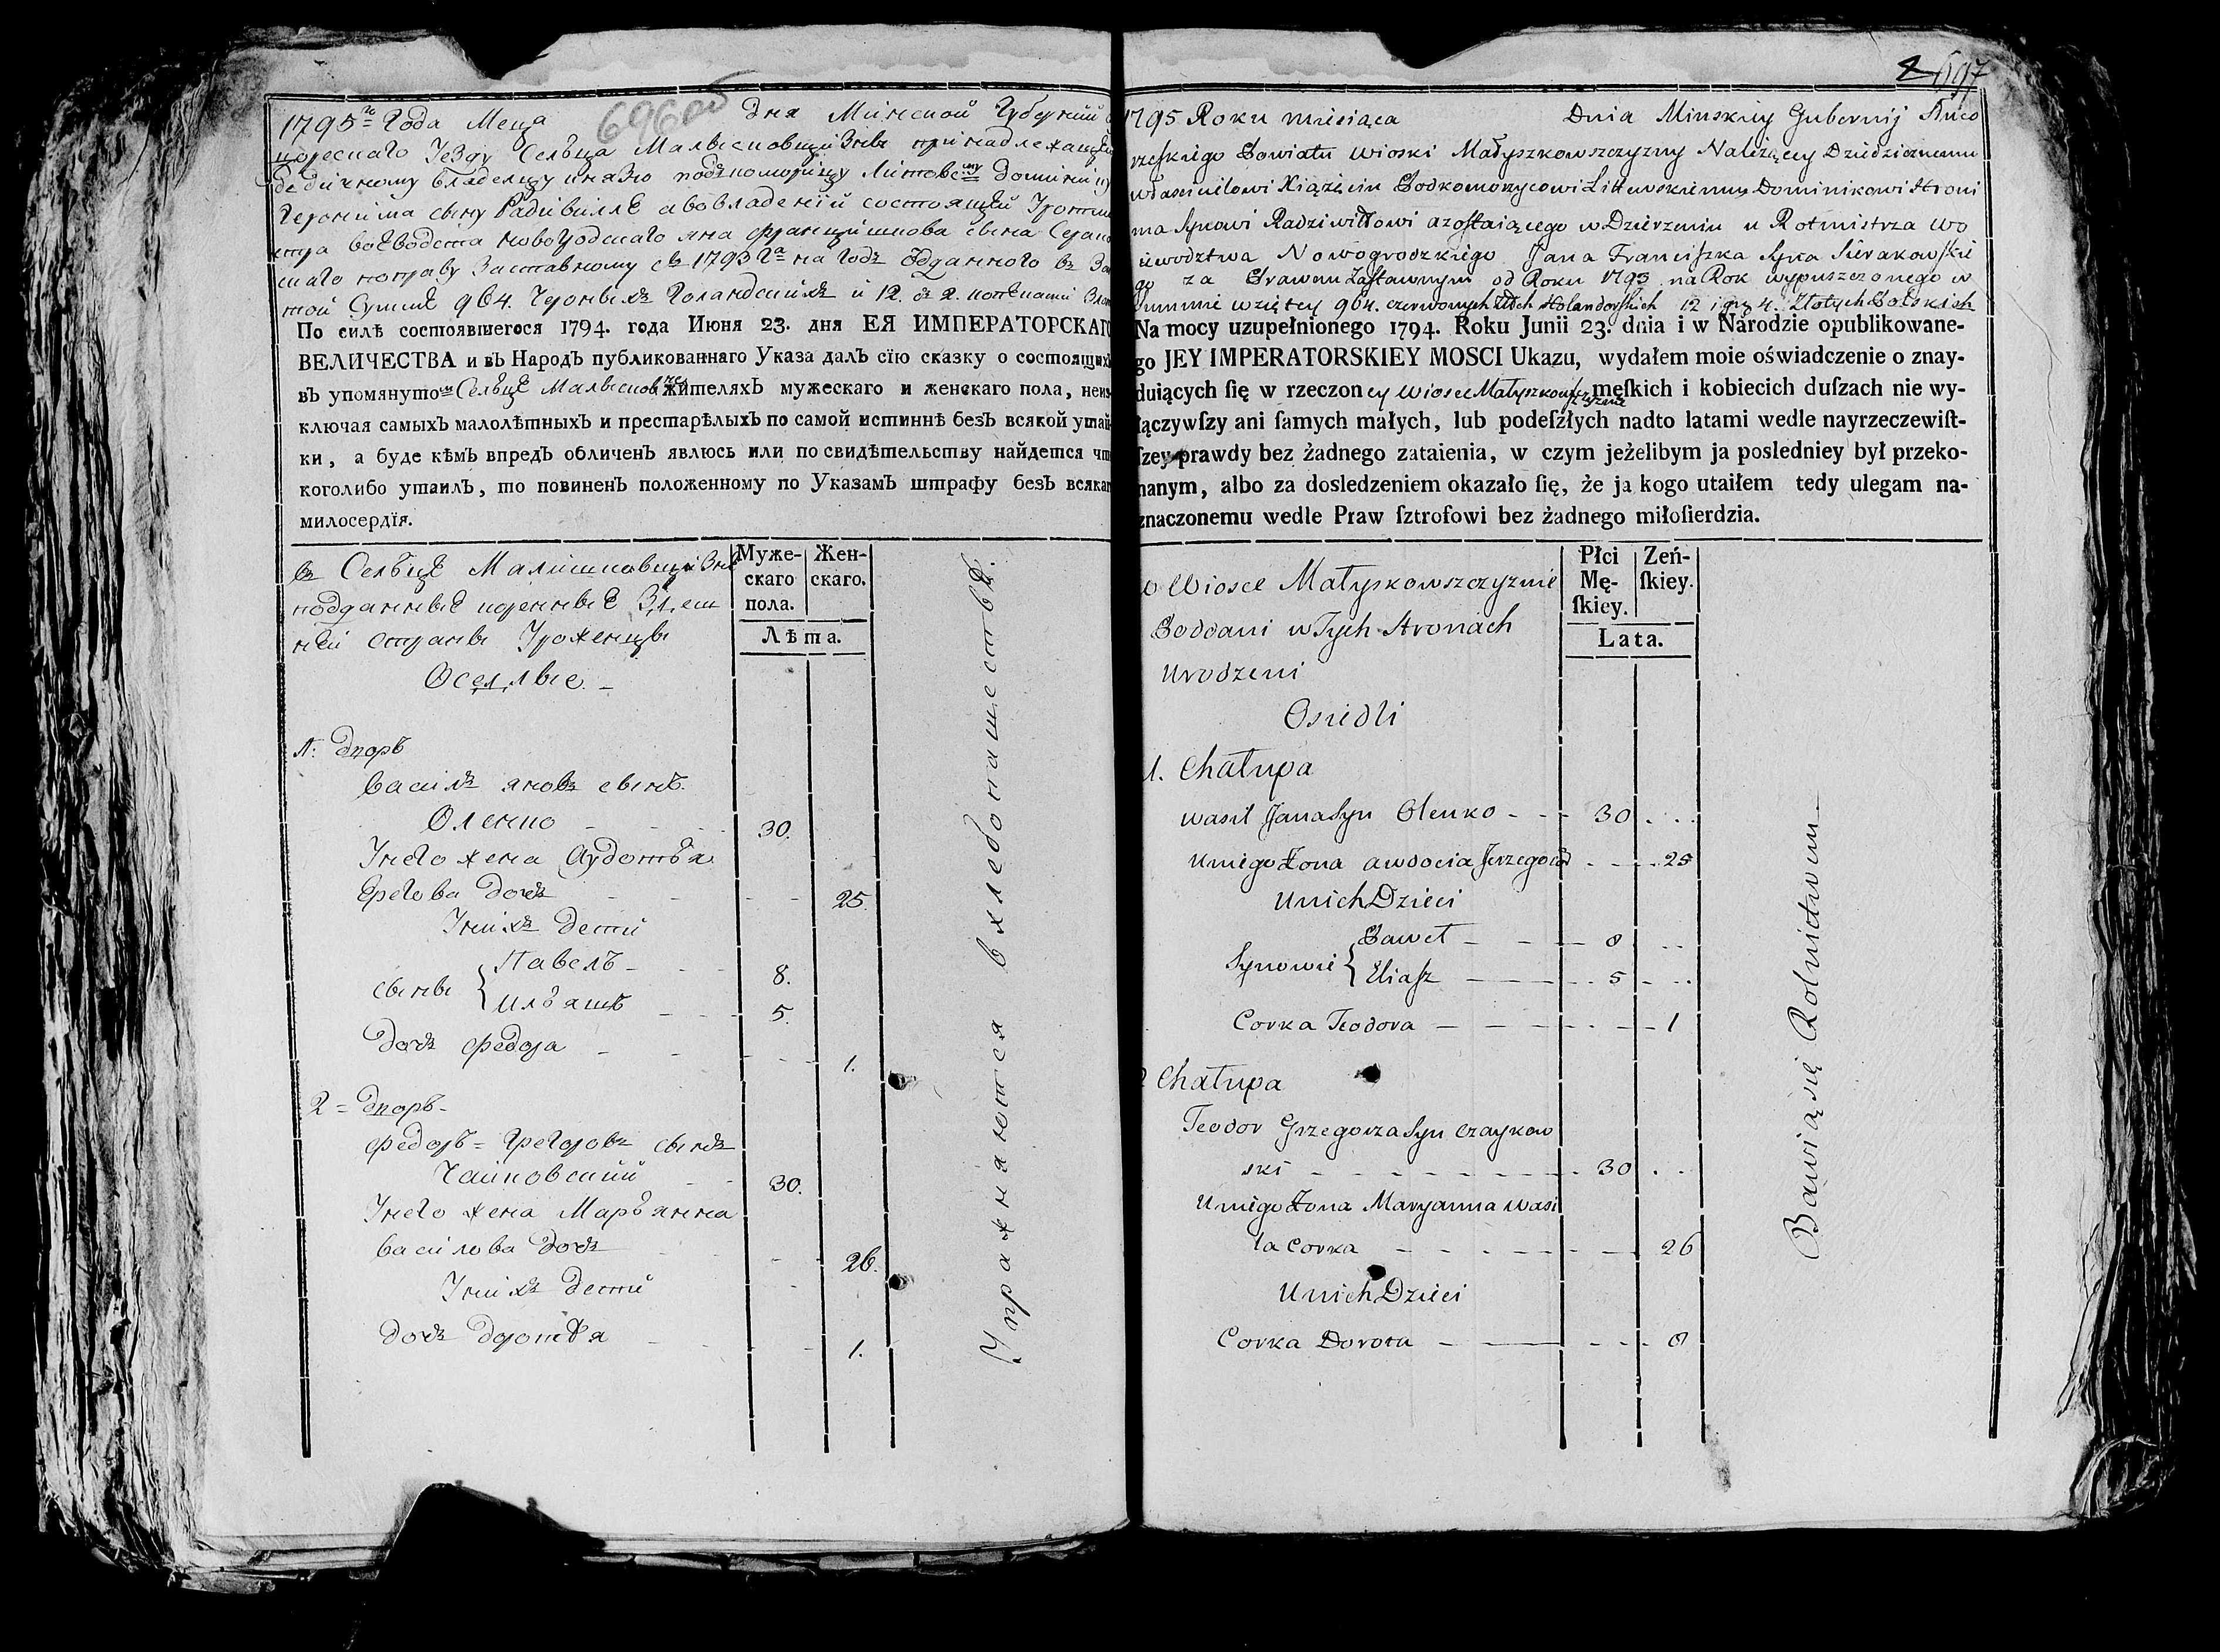 696 об
1795 Года Меца дня Минской Губернии
Уезду Сельца принадлежащей
бедичному владелцу князю подкоморицу Литовс
Геронима сыну Радивилле а во владении состоящей
воеводства Новогродскаго яна францишкова сына
по праву Заставному съ 1793 на Годъ Отданного въ
Сумме 964. Червоныхъ Голандскихъ и 12. Зл 2.
По силѣ состоявшегося 1794. года Июня 23. дня ЕЯ ИМПЕРАТОРСКАГ
ВЕЛИЧЕСТВА и въ НародЪ публикованнаго Указа далЪ сїю сказку о состоящихъ
въ упомянуто Сельце жителяхЪ мужескаго и женскаго пола, неис
ключая самыхЪ малолѣтныхЪ и престарѣлыхЪ по самой истиннѣ безЪ всякой утай-
ки, а буде кѣмЪ впредЪ обличенЪ явлюсь или по свидѣтельству найдется чт
коголибо утаилЪ, то повиненЪ положенному по УказамЪ штрафу безЪ всякаг
милосердїя.
въ Сельце
Муже-
скаго
пола.
Жен-
скаго.
Лѣта.
подданные коренные Здеш
ней страны Уроженцы
Оселлые. -
1: дворъ
василь яновъ сынъ.
Оленко - 30.
Унего жена Аудотья
дочь - 25.
Унихъ дети
сыны { Павелъ - 8.
Ильяшъ - 5.
дочь федора - 1.
2 = дворъ-
федоръ = Грегоровъ сынъ
Чайковский - 30.
Унего жена Марьянна
василова дочь - 26.
Унихъ дети
дочь доротея - 1.
Упражняются в хлебопашестве.
2 697
1795 Roku miesiąca Dnia Minskiey Gubernij Nieś
wieskiego Powiatu Wioski Małyszkowszczyzny Należącey Dziedzicznemu
włascicielowi Xiążęciu Podkomorzycowi Littewskiemu Dominikowi Hroni
ma Synowi Radziwiłłowi a zostaiącego w Dzierżeniu u Rotmistrza Wo
iewodztwa Nowogrodzkiego Jana Franciszka Syna Sierakowskie
go za Prawem Zastawnym od Roku 1793 na Rok wypuszczonego w
Summie wziętey 964. czerwonych Złłch Holanderskich 12 i gr. 4. Złotych Polskich
Na mocy uzupełnionego 1794. Roku Junii 23. dnia i w Narodzie opublikowane-
go JEY IMPERATORSKIEY MOSCI Ukazu, wydałem moie oświadczenie o znay-
duiących ſię w rzeczoney Wiosce Małyszkowszczyznie męſkich i kobiecich duſzach nie wy-
łączywſzy ani ſamych małych, lub podeſzłych nadto latami wedle nayrzeczewiſt-
ſzey prawdy bez żadnego zataienia, w czym jeżelibym ja posledniey był przeko-
nanym, albo za dosledzeniem okazało ſię, że ja kogo utaiłem tedy ulegam na-
znaczonemu wedle Praw ſztrofowi bez żadnego miłoſierdzia.
w Wiosce Małyszkowszczyznie
Płci
Mę-
ſkiey.
Zeń-
ſkiey.
Lata.
Poddani w Tych Stronach
Urodzeni
Osiedli
1. Chałupa
Wasil Jana Syn Olenko - - - 30 . . .
U niego Żona Awdocia - - - 25
U nich Dzieci
Synowie { Paweł - - - 8 . .
Eliasz - - - 5 - . .
Corka Teodora - - - 1
2 Chałupa
Teodor Grzegorza Syn Czaykow
ski - - - 30 . .
U niego Żona Maryanna Wasi
la Corka - - - 26
U nich Dzieci
Corka Dorota - - - 8
Bawią się Rolnictwem